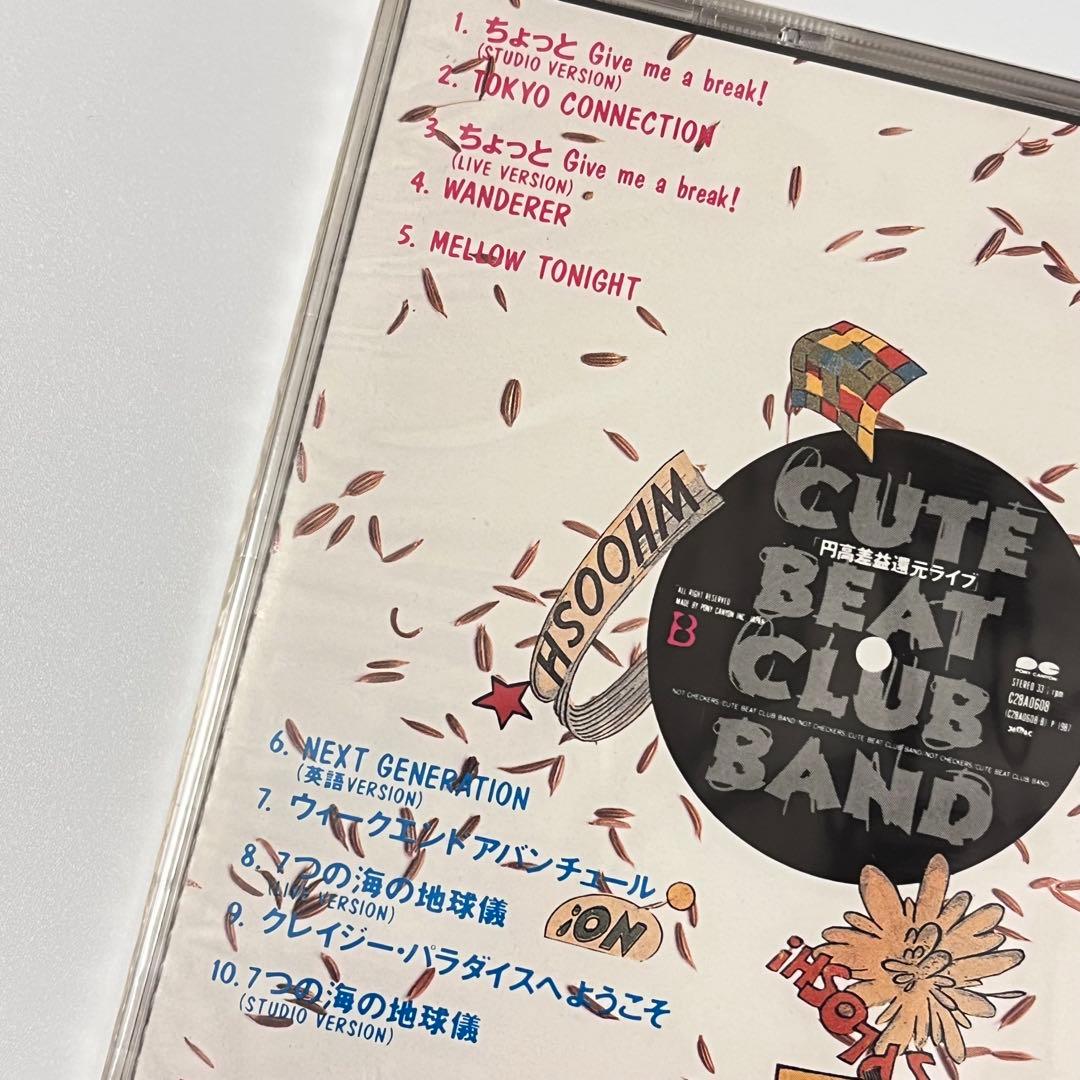 1. ちょっと Give me a break!
(STUDIO VERSION)
2. TOKYO CONNECTION
3. ちょっと Give me a break!
(LIVE VERSION)
4. WANDERER
5. MELLOW TONIGHT
WHOOSH
CUTE
「円高差益還元ライブ」
BEAT
CLUB
BAND
ALL RIGHT RESERVED
MADE BY PONY CANYON INC. JAPAN
B
PONY CANYON
STEREO 33⅓rpm
C28A0608
(C28A0608 B)
NOT CHECKERS/CUTE BEAT CLUB BAND/NOT CHECKERS/CUTE BEAT CLUB BAND/NOT CHECKERS/CUTE BEAT CLUB BAND
6. NEXT GENERATION
(英語VERSION)
7. ウィークエンドアバンチュール
8. 7つの海の地球儀
(LIVE VERSION)
9. クレイジー・パラダイスへようこそ
10. 7つの海の地球儀
(STUDIO VERSION)
NO!
SPLOSH!